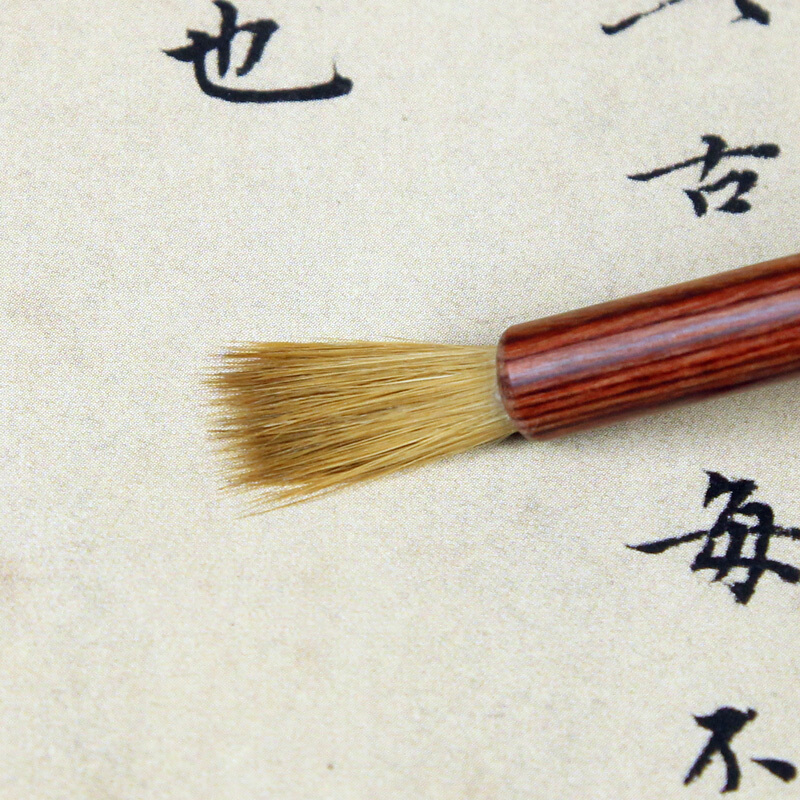 古
每
不
也